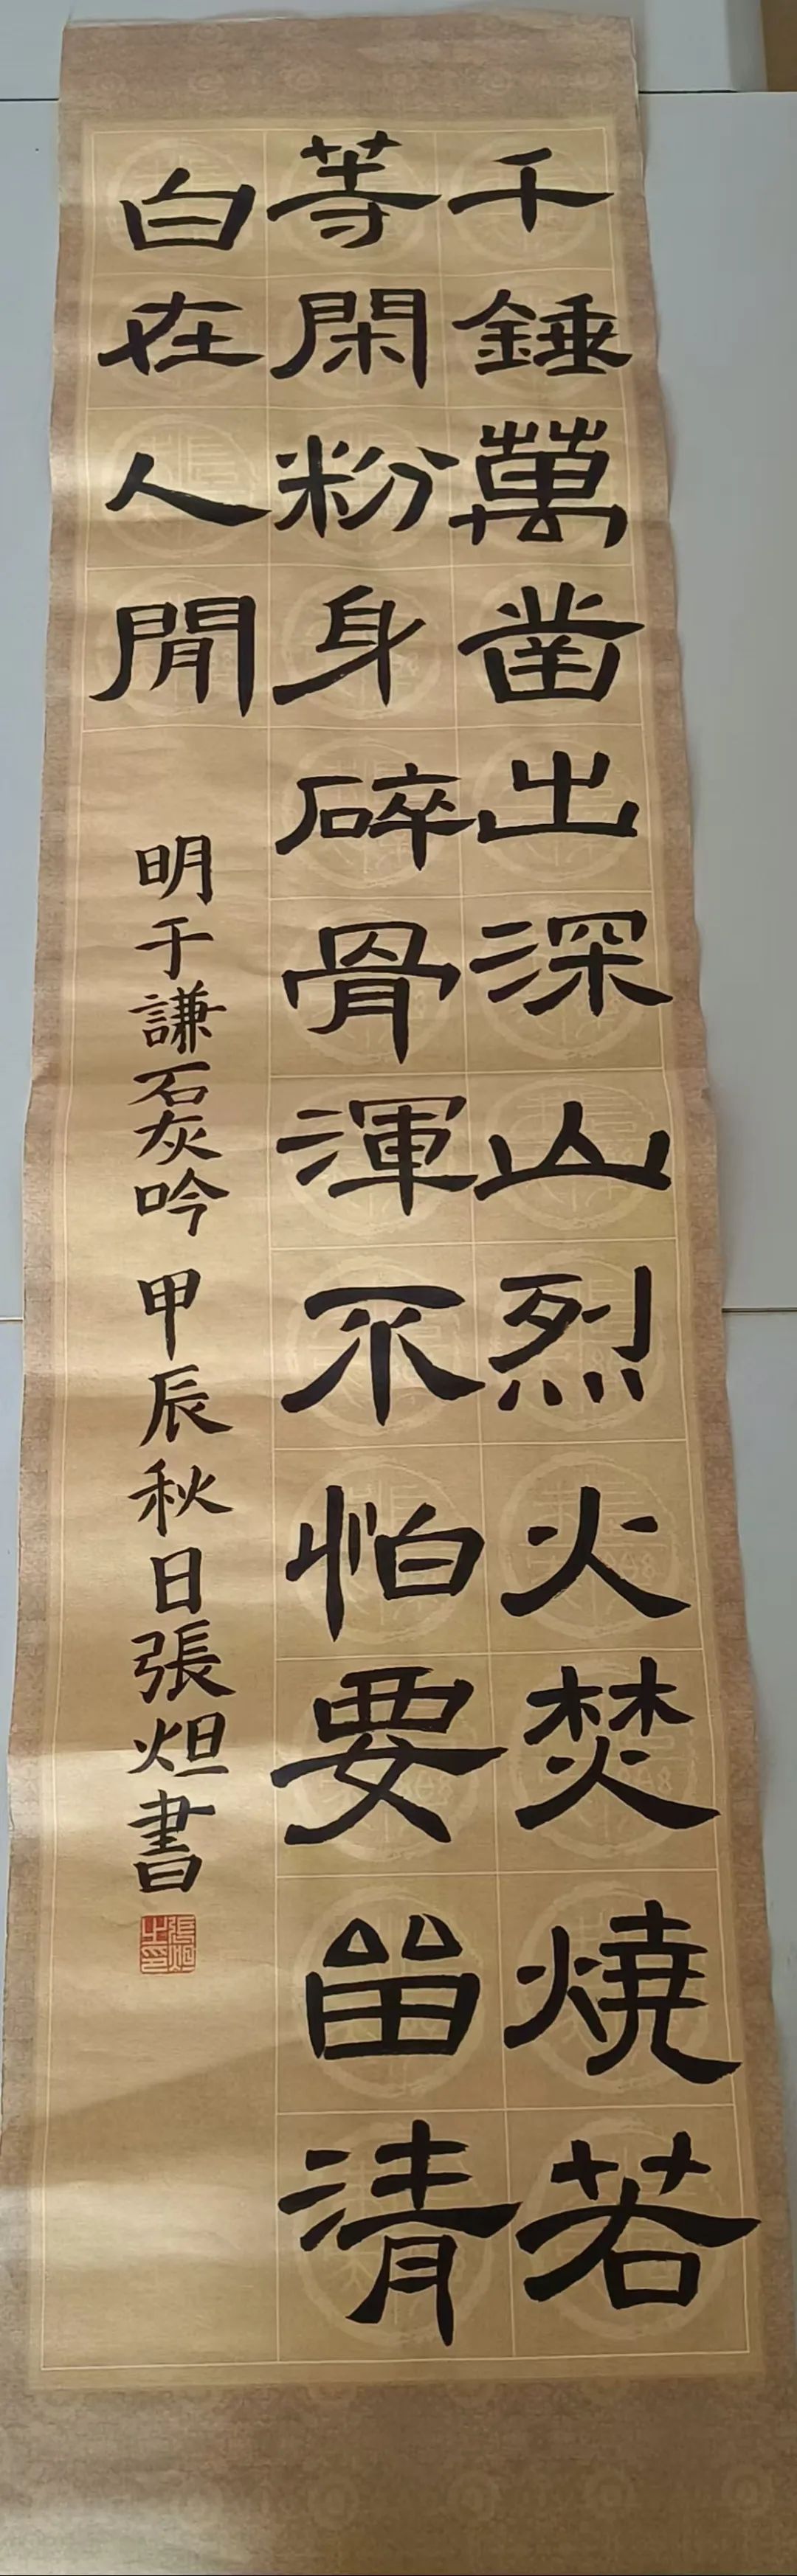 千錘萬凿出深山烈火焚燒若
等閑粉身碎骨渾不怕要畱清
白在人閒
明于謙石灰吟 甲辰秋日張炟書
張炟之印